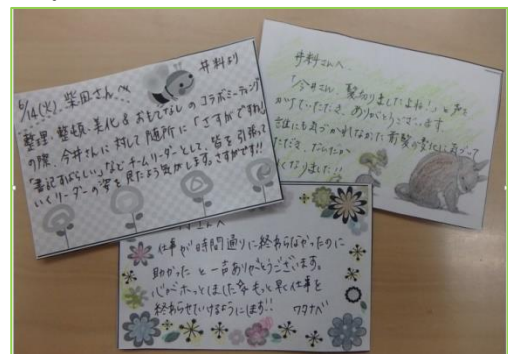 6/14(火) 柴田さんへ 井料より
整理・整頓・美化&おもてなしのコラボミーティング
の際、今井さんに対して随所に「さすがですね」
「書記すばらしい」などチームリーダーとして、皆を引張って
いくリーダーの姿を見たよう気がします。さすがです!!
井料さんへ
「今井さん、髪切りましたよね!」と声を
かけていただき、ありがとうございます。
誰にも気づかれなかった前髪の変化に気づいて
ただき、だいたいが
くなりました!!
さんへ
仕事が時間通りに終わらなかったのに
助かった と一声ありがとうございます。
心がホッとしました もっと早く仕事を
終わらせていけるようにします!!
ワタナベ